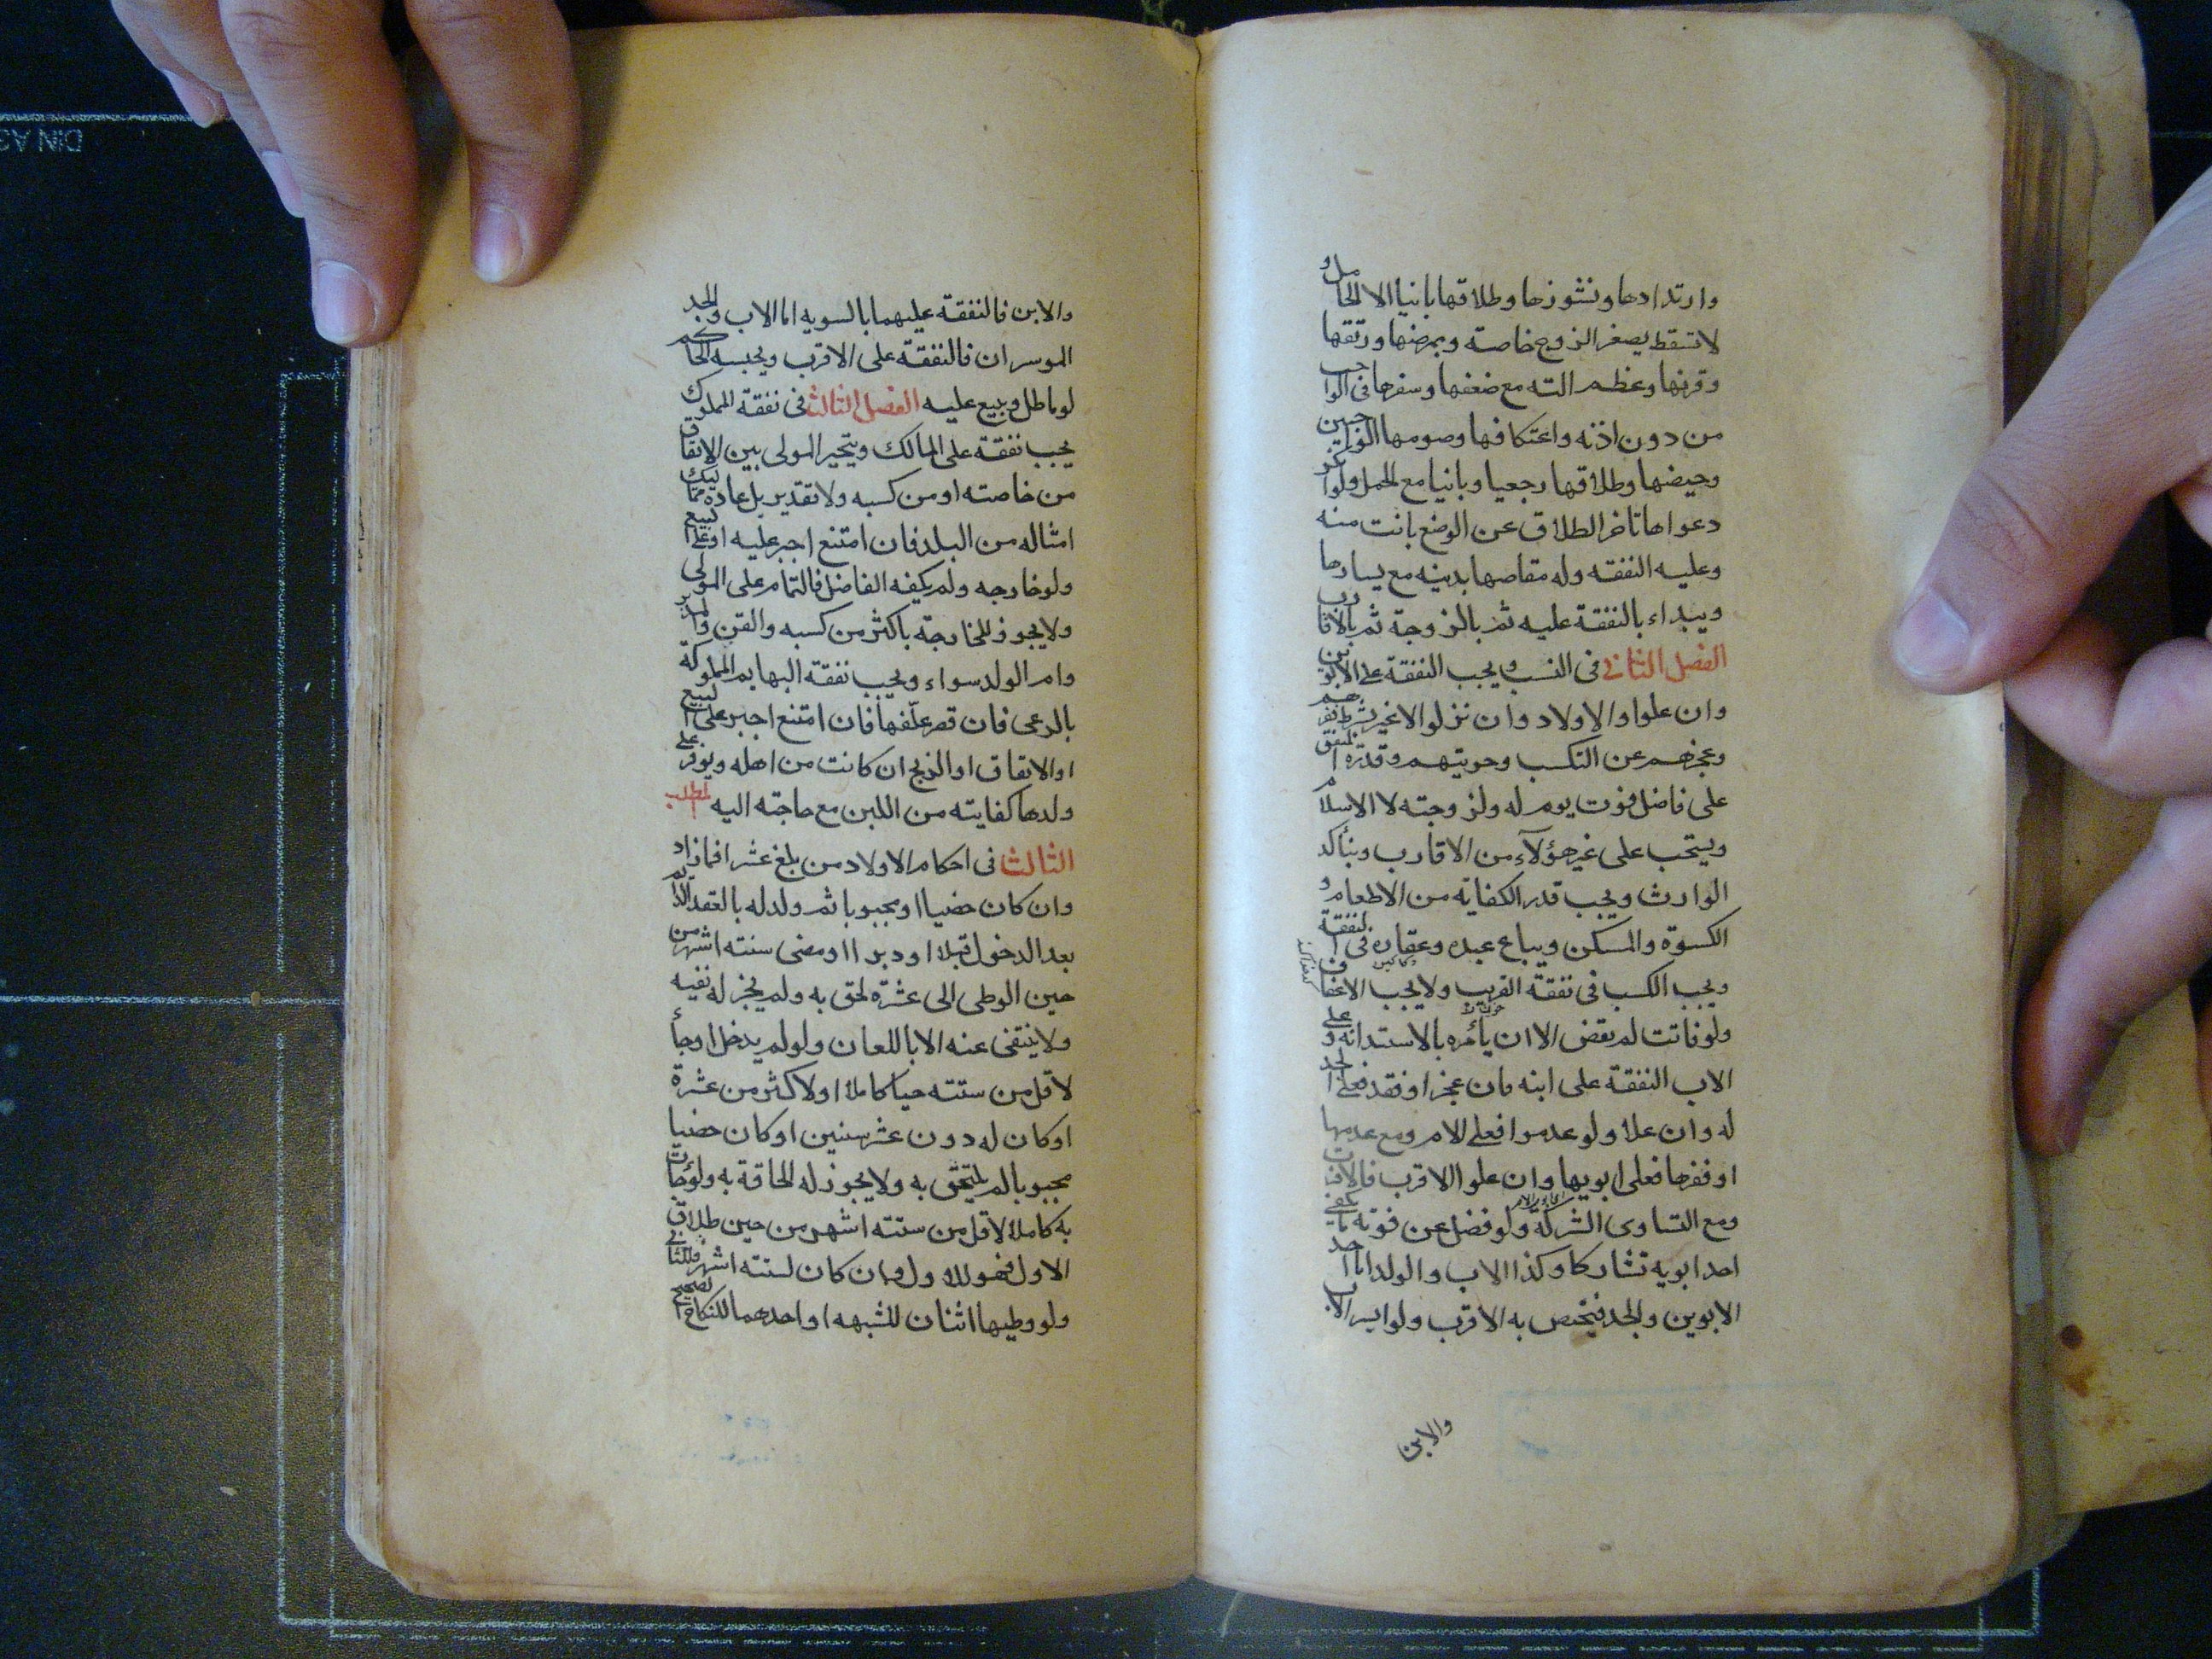 وارتدادها ونشوزها وطلاقها بانيا الا الحامل و
لا تسقط بصغر الزوج خاصته وبمرضها ورتقها
وقرنها وعظم الته مع ضعفها وسفرها فى الواجب
من دون اذنه واعتكافها وصومها الواجبين
وحيضها وطلاقها رجعيا وبانيا مع الحمل ولو
دعواها تاخر الطلاق عن الوضع بانت منه
وعليه النفقه وله مقاصها بدينه مع يسارها
ويبداء بالنفقة عليه ثم بالزوجة ثم بالاقارب
الفصل الثانى فى النسب ويجب النفقة على الابوين
وان علوا والاولاد وان نزلوا لاغير بشرط فقرهم
وعجزهم عن التكسب وحريتهم وقدرة المنفق
على فاضل قوت يوم له ولزوجته لا الاسلام
ويستحب على غير هؤلآء من الاقارب ويتأكد
الوارث ويجب قدر الكفاية من الاطعام و
الكسوة والمسكن ويباع عبده وعقاره فى النفقة
ويجب الكسب فى نفقة القريب ولا يجب الاعفاف
ولو فاتت لم يقض الا ان يأمره بالاستدانة و على
الاب النفقة على ابنه فان عجز او فقد فعلى الجد
له وان علا ولو عدموا فعلى الام ومع عدمها
او فقرها فعلى ابويها وان علوا الاقرب فالاقرب
ومع التساوى الشركة ولو فضل عن قوته ما يكفى
احد ابويه تشاركا وكذا الاب والولد اما احد
الابوين والجد فيختص به الاقرب ولو ايسر الاب
والابن
والابن فالنفقة عليهما بالسويه اما الاب والجد
الموسران فالنفقة على الاقرب ويحبسه الحاكم
لو ماطل ويبيع عليه الفصل الثالث فى نفقة المملوك
يجب نفقة على المالك ويتخير المولى بين الانفاق
من خاصته او من كسبه ولا تقدير بل عادة مماليك
امثاله من البلد فان امتنع اجبر عليه او على البيع
ولو خارجه ولم يكفه الفاضل فالتمام على المولى
ولا يجوز للخارجة باكثر من كسبه والقن والمدبر
وام الولد سواء ويجب نفقة البهايم المملوكة
بالرعى فان قصر علّفها فان امتنع اجبر على البيع
او الانفاق او الذبح ان كانت من اهله ويوفر على
ولدها كفايته من اللبن مع حاجته اليه المطلب
الثالث فى احكام الاولاد من بلغ عشرا فما زاد
وان كان خصيا او مجبوبا ثم ولد له بالعقد الدايم
بعد الدخول قبلا او دبرا ومضى ستته اشهر من
حين الوطى الى عشرة لحق به ولم يجز له نفيه
ولا ينتفى عنه الا باللعان ولو لم يدخل او جأ
لاقل من ستته حيا كاملا او لاكثر من عشرة
او كان له دون عشر سنين او كان خصيا
مجبوبا لم يلتحق به ولا يجوز له الحاقة به ولو جات
به كاملا لاقل من ستته اشهر من حين طلاق
الاول فهو للاول وان كان لستته اشهر فللثانى
ولو وطيها اثنان للشبهه او احدهما للنكاح الصحيح